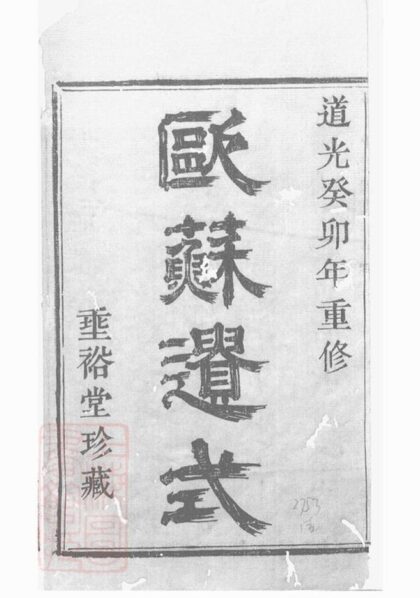 道光癸卯年重修
歐蘇遺式
垂裕堂珍藏
2753